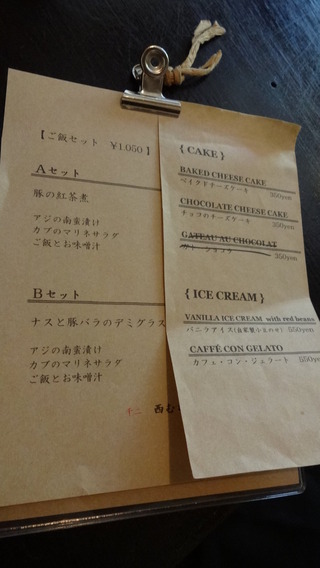 【ご飯セット ¥1,050】
Aセット
豚の紅茶煮
アジの南蛮漬け
カブのマリネサラダ
ご飯とお味噌汁
Bセット
ナスと豚バラのデミグラス
アジの南蛮漬け
カブのマリネサラダ
ご飯とお味噌汁
十二 西む
{ CAKE }
BAKED CHEESE CAKE
ベイクドチーズケーキ 350yen
CHOCOLATE CHEESE CAKE
チョコのチーズケーキ 350yen
GATEAU AU CHOCOLAT
ガトーショコラ 350yen
{ ICE CREAM }
VANILLA ICE CREAM with red beans
バニラアイス 550yen
CAFFÈ CON GELATO
カフェ・コン・ジェラート 550ye